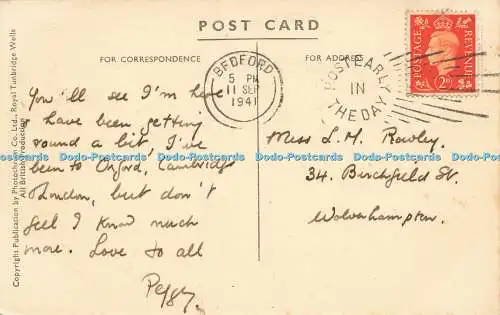 POST CARD
FOR CORRESPONDENCE
FOR ADDRESS
BEDFORD
5 PM
11 SEP
1941
POST EARLY
IN
THE DAY
POSTAGE
REVENUE
2D
Copyright Publication by Photochrom Co. Ltd., Royal Tunbridge Wells
All British Production
You'll see I'm here
& have been getting
round a bit, I've
been to Oxford, Cambridge
London, but don't
feel I know much
more. Love to all
Peggy.
Miss L. M. Rowley.
34. Birchfield St.
Wolverhampton.
Dodo-Postcards Dodo-Postcards Dodo-Postcards Dodo-Postcards Dodo-Postcards